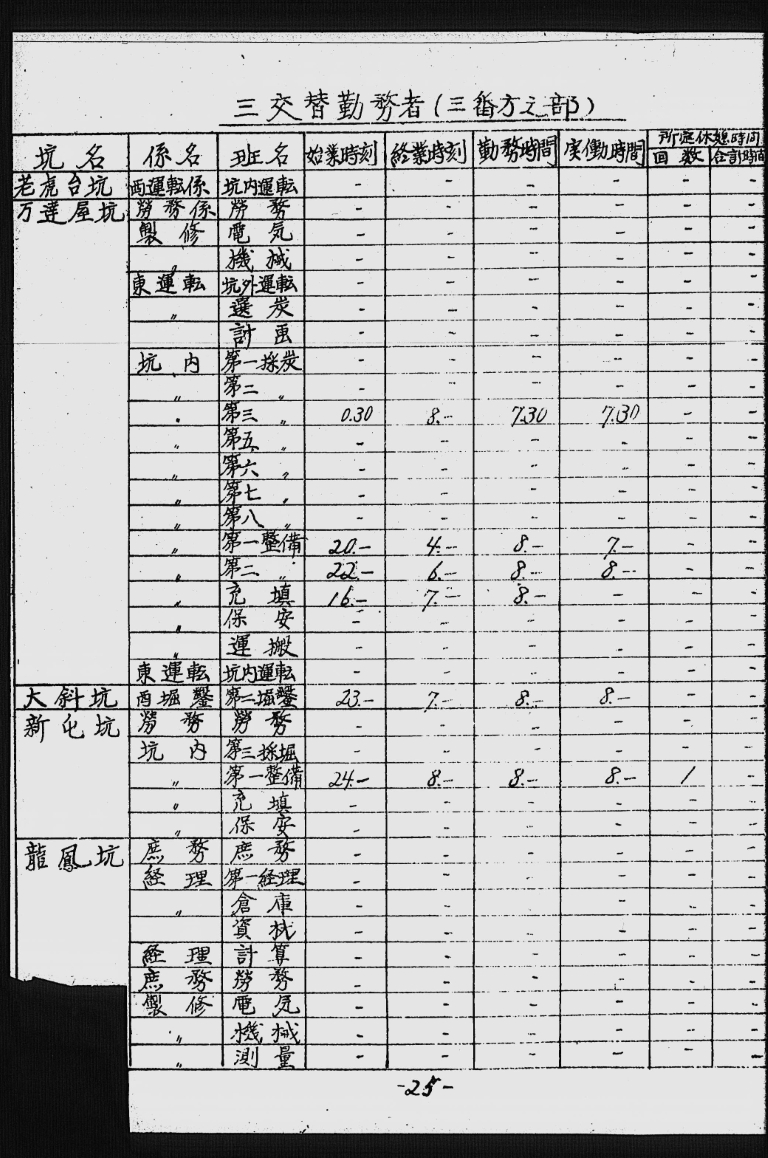 三交替勤務者(三番方之部)
坑名 係名 班名 始業時刻 終業時刻 勤務時間 実働時間 所定休憩時間
回数 合計時間
老虎台坑 西運転係 坑内運転 - - - - - -
万達屋坑 勞務係 勞務 - - - - - -
製修 電気 - - - - - -
〃 機械 - - - - - -
東運転 坑外運転 - - - - - -
〃 選炭 - - - - - -
計画 - - - - - -
坑内 第一採炭 - - - - - -
〃 第二〃 - - - - - -
〃 第三〃 0.30 8.- 7.30 7.30 - -
〃 第五〃 - - - - - -
〃 第六〃 - - - - - -
〃 第七〃 - - - - - -
〃 第八〃 - - - - - -
〃 第一整備 20.- 4.- 8.- 7.- - -
〃 第二〃 22.- 6.- 8.- 8.- - -
〃 充填 16.- 7.- 8.- - - -
〃 保安 - - - - - -
〃 運搬 - - - - - -
東運転 坑内運転 - - - - - -
大斜坑 西堀鑿 第二堀鑿 23.- 7.- 8.- 8.- - -
新屯坑 勞務 勞務 - - - - - -
坑内 第三採堀 - - - - - -
〃 第一整備 24.- 8.- 8.- 8.- 1 -
〃 充填 - - - - - -
〃 保安 - - - - - -
龍鳳坑 庶務 庶務 - - - - - -
経理 第一経理 - - - - - -
〃 倉庫 - - - - - -
資材 - - - - - -
経理 計算 - - - - - -
庶務 勞務 - - - - - -
製修 電気 - - - - - -
〃 機械 - - - - - -
〃 測量 - - - - - -
-25-